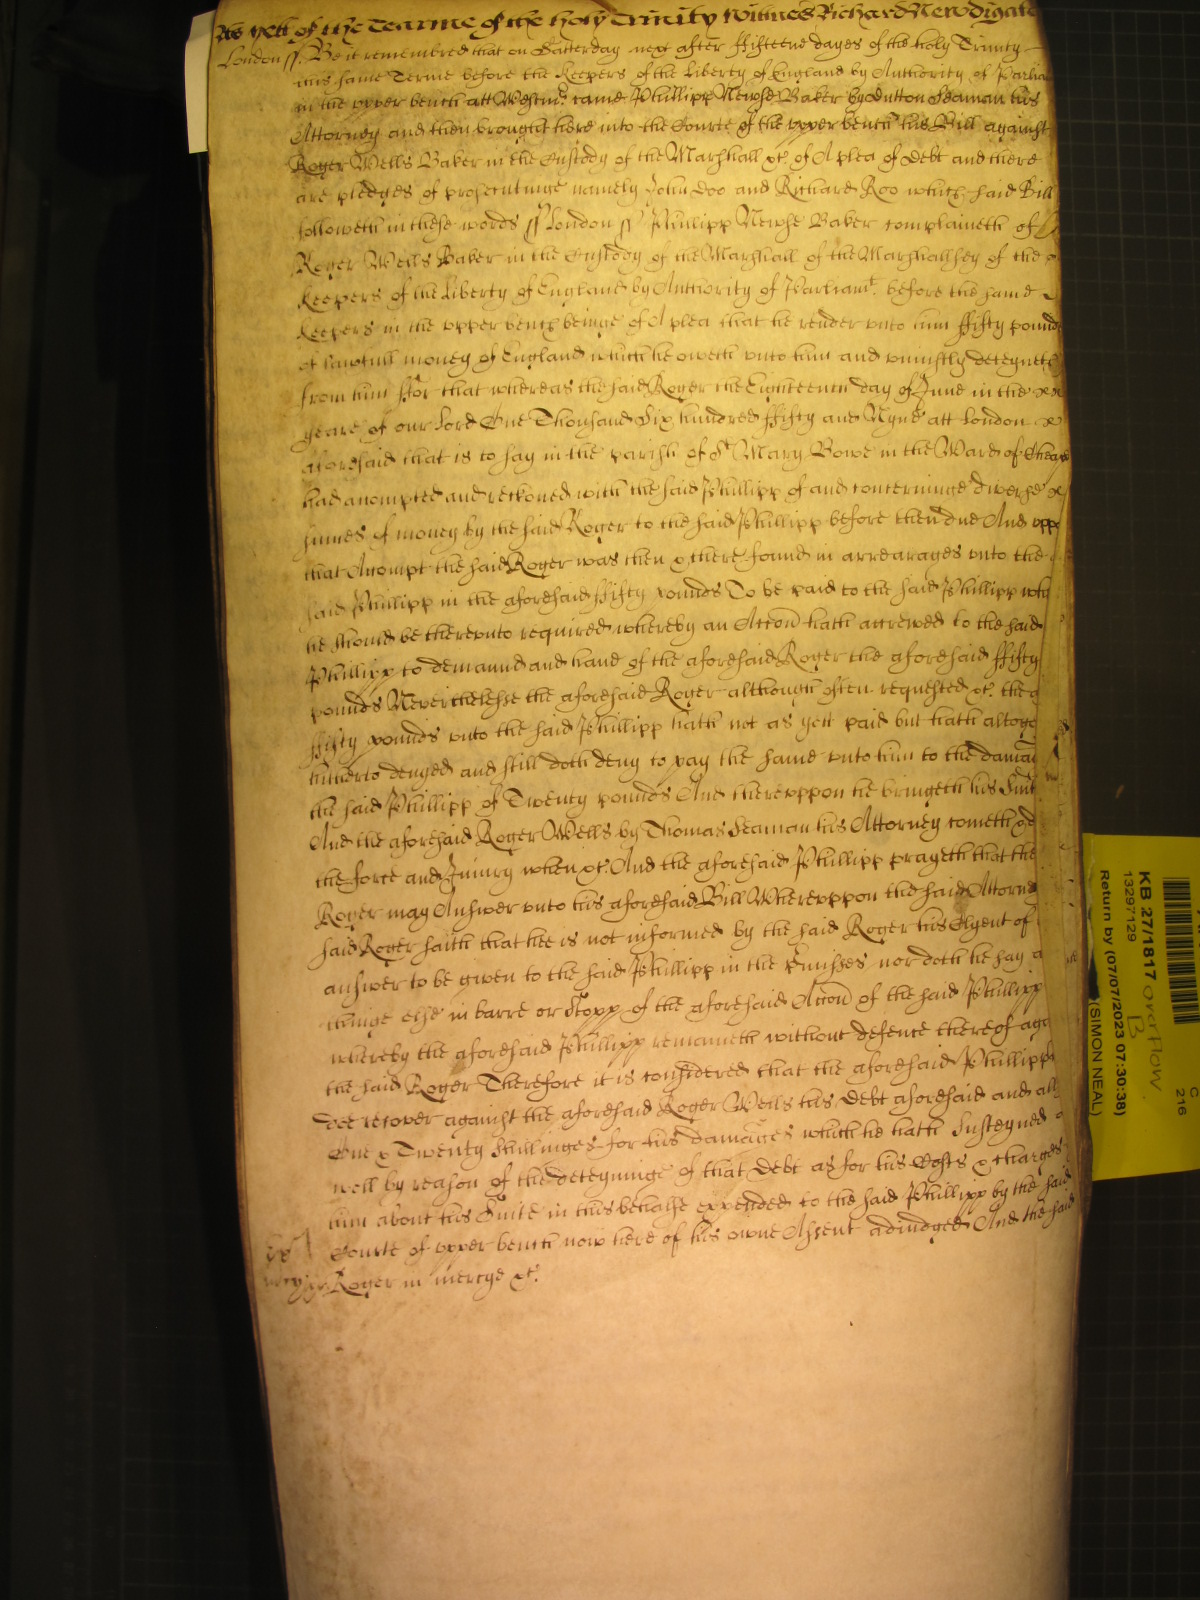 As yett of the Tearme of the holy Trinity Witnes Richard Newdigate
London ss. Be it remembred that on Satterday next after ffifteene dayes of the holy Trinity
this same Terme before the Keepers of the Liberty of England by Authority of Parlia
in the upper bench att Westmr. came Phillipp Newse Baker by Dutton Seaman his
Attorney and then brought here into the Courte of the upper bench his Bill against
Roger Wells Baker in the Custody of the Marshall &c. of A plea of Debt and there
are pledges of prosecutinge namely John Doo and Richard Roo which said Bill
followeth in these words ss London ss Phillipp Newse Baker complaineth of
Roger Wells Baker in the Custody of the Marshall of the Marshallsey of the
Keepers of the Liberty of England by Authority of Parliamt. before the same
Keepers in the upper bench beinge of A plea that he render unto him ffifty pounds
of lawfull money of England which he oweth unto him and uniustly deteyneth
from him ffor that whereas the said Roger the Eighteenth day of June in the
yeare of our Lord One Thousand Six hundred ffifty and Nyne att London
aforesaid that is to say in the parish of St Mary Bowe in the Ward of Cheap
had acompted and reckoned with the said Phillipp of and concerninge diverse
summes of money by the said Roger to the said Phillipp before then due And upp
that Accompt the said Roger was then & there found in arrearages unto the
said Phillipp in the aforesaid ffifty pounds To be paid to the said Phillipp whe
he should be thereunto required whereby an Accon hath accrewed to the said
Phillipp to demaund and have of the aforesaid Roger the aforesaid ffifty
pounds Neverthelesse the aforesaid Roger although often requested &c. the
ffifty pounds unto the said Phillipp hath not as yett paid but hath altoge
hitherto denyed and still doth deny to pay the same unto him to the dama
the said Phillipp of Twenty pounds And thereuppon he bringeth his Suit
And the aforesaid Roger Wells by Thomas Seaman his Attorney cometh
the force and Iniury when &c. And the aforesaid Phillipp prayeth that the
Roger may Answer unto his aforesaid Bill Whereuppon the said Attorne
said Roger saith that hee is not informed by the said Roger his Clyent of
answer to be given to the said Phillipp in the Pmisses nor doth he say a
thinge else in barre or Stopp of the aforesaid Accon of the said Phillipp
whereby the aforesaid Phillipp remaineth without defence thereof aga
the said Roger Therefore it is considered that the aforesaid Phillipp
doe recover against the aforesaid Roger Wells his Debt aforesaid and al
One & Twenty Shillinges for his damages which he hath Susteyned
well by reason of the deteyninge of that Debt as for his Costs & charges
him about his Suite in this behalfe expended to the said Phillipp by the said
Courte of upper bench now here of his owne Assent adiudged And the said
Roger in mercye &c.
KB 27/1817 overflow
B
13297129
Return by (07/07/2023 07:30:38)
(SIMON NEAL)
C
216